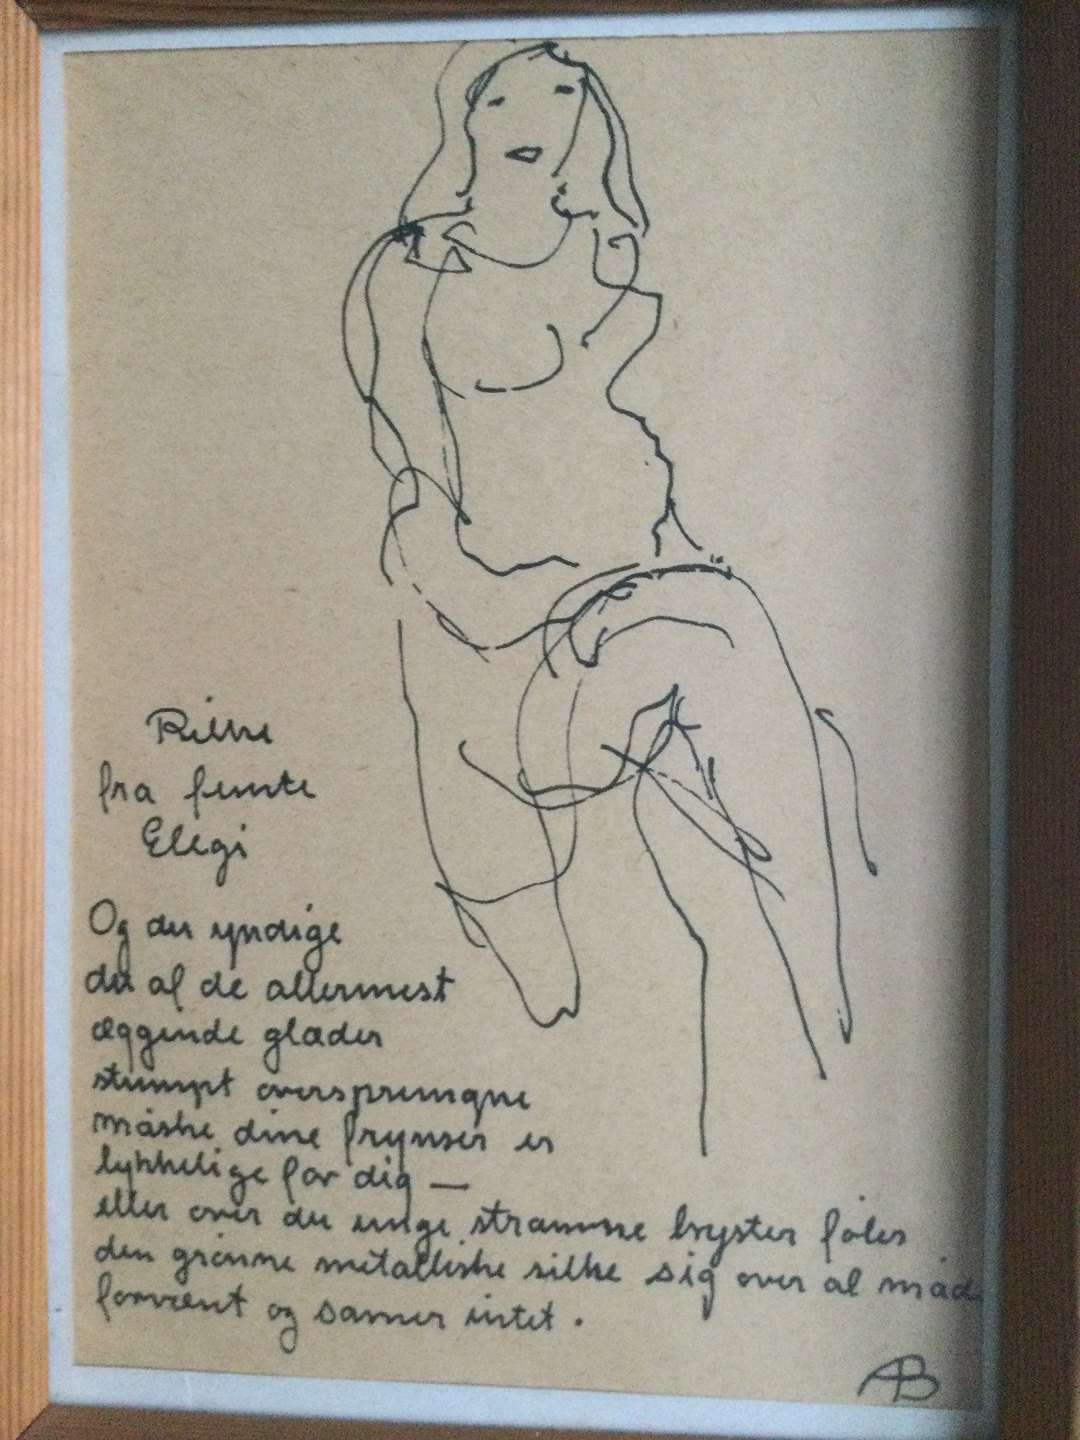 Rilke
fra femte
Elegi
Og du yndige
du af de allermest
æggende glæder
stumpt oversprungne
måske dine frynser er
lykkelige for dig —
eller over de unge stramme bryster føles
den grønne metalliske silke sig over al måde
forvænt og savner intet.
AB